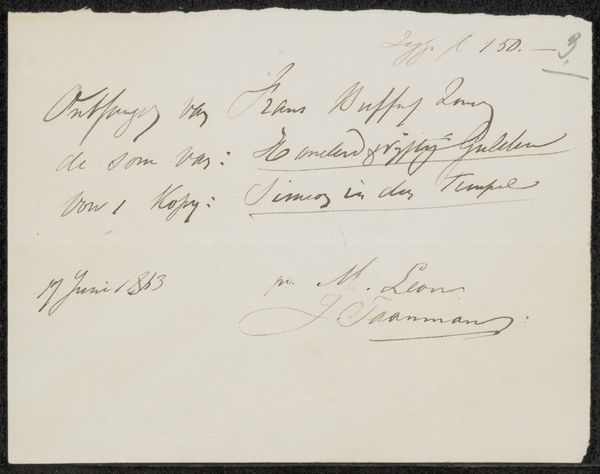 Zegge f 150.— 3,
Ontfangen van Frans Buffa & Zonen
de som van: Honderd & vijftig Gulden
voor 1 Kopy: Simeon in den Tempel
17 Juni 1863
pr. M. Leon
J Taanman